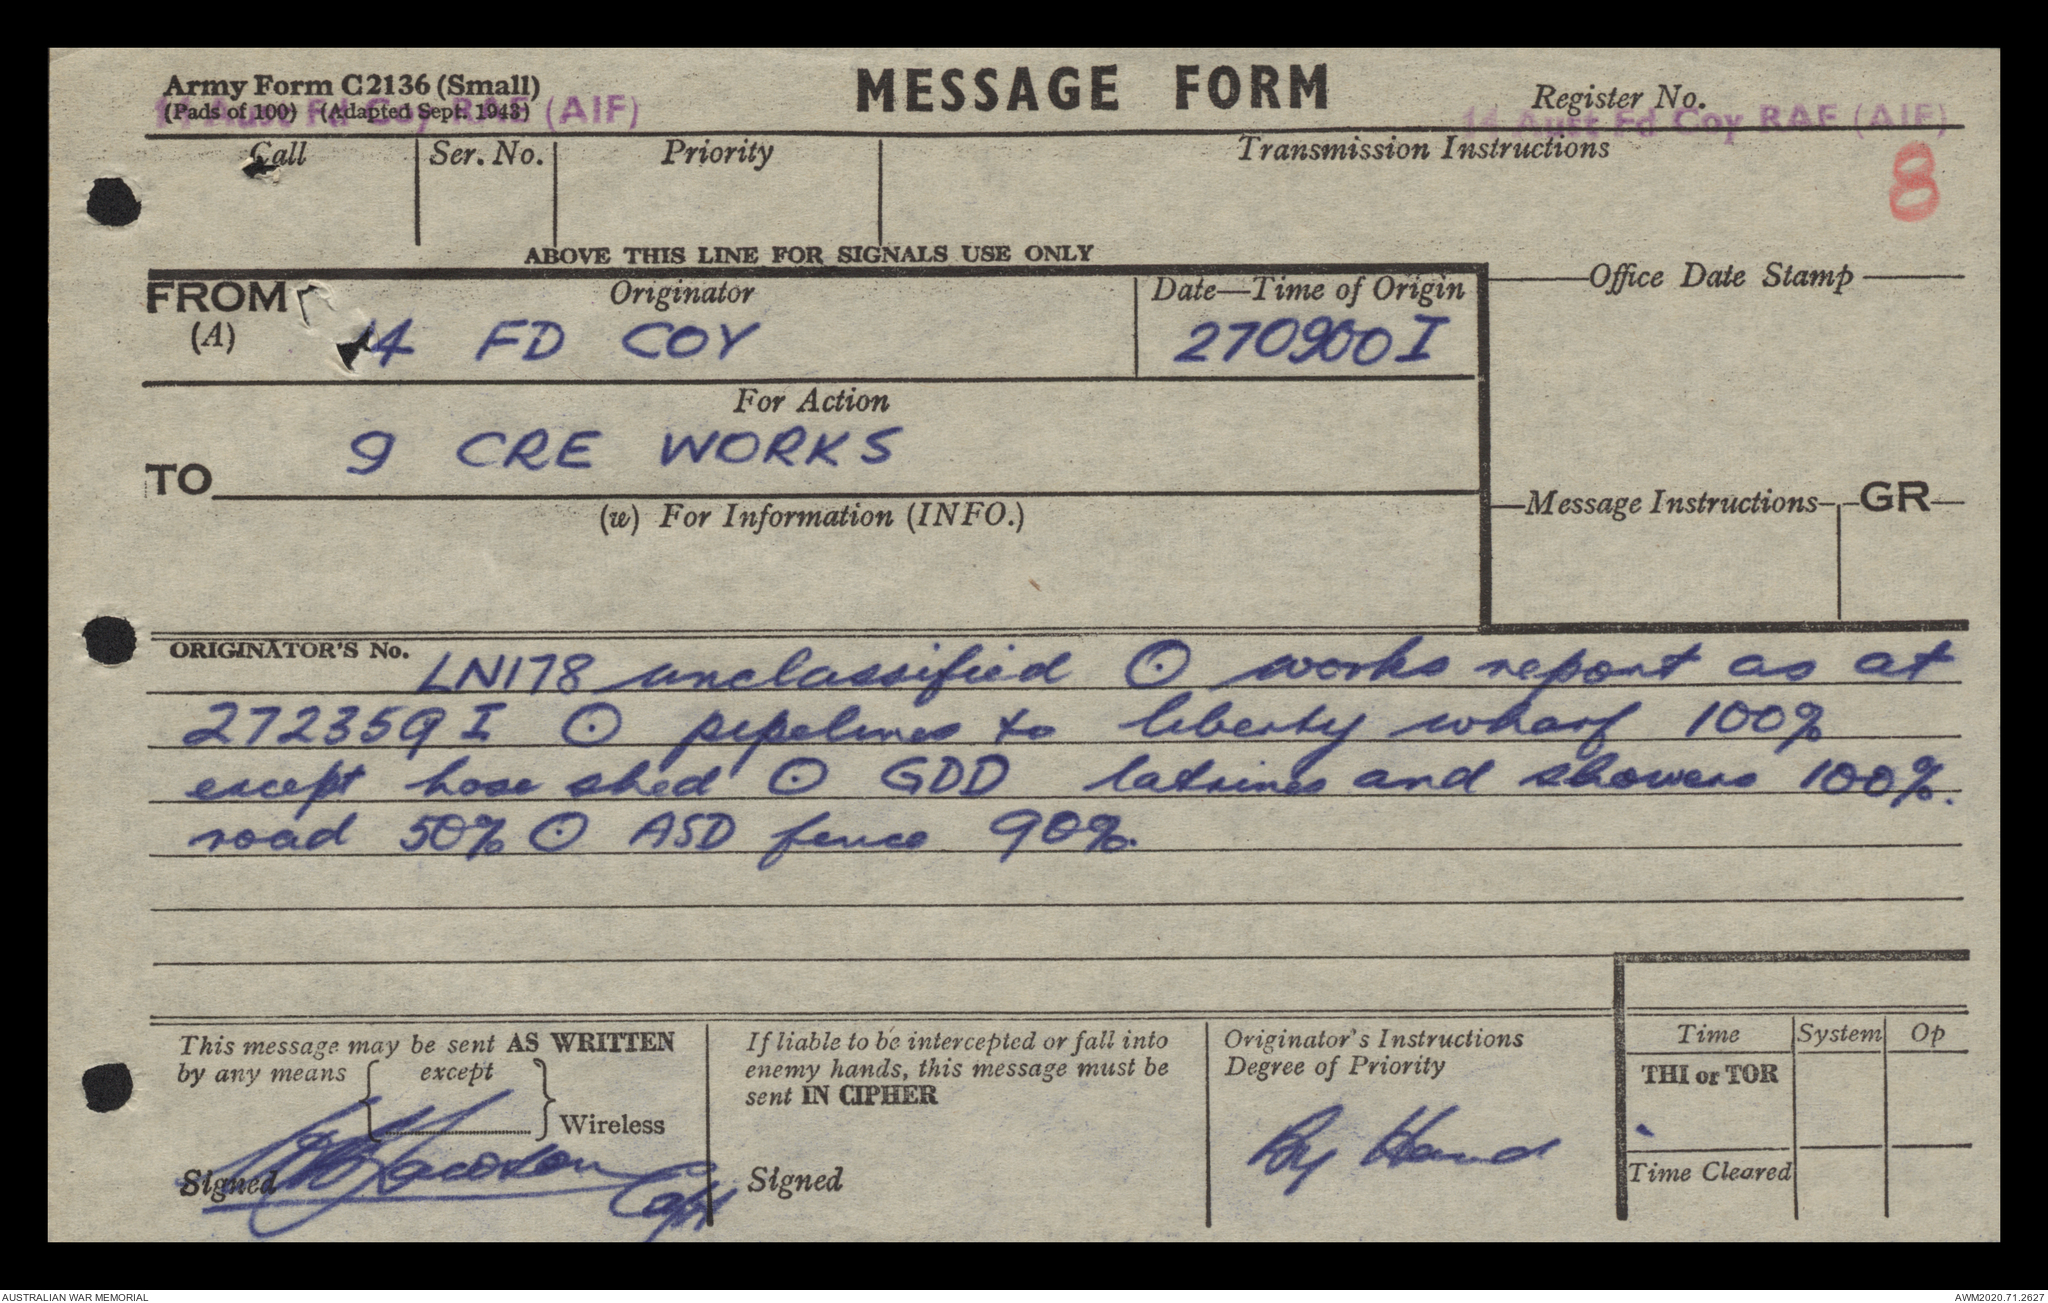 Army Form C2136 (Small)
(Pads of 100) (Adapted Sept. 1943)
14 Aust Fd Coy RAE (AIF)
MESSAGE FORM
Register No.
14 Aust Fd Coy RAE (AIF)
Call Ser. No. Priority Transmission Instructions
8
ABOVE THIS LINE FOR SIGNALS USE ONLY
FROM Originator Date—Time of Origin Office Date Stamp
(A) 14 FD COY 270900I
For Action
9 CRE WORKS
TO
(w) For Information (INFO.) Message Instructions GR
ORIGINATOR'S No. LN178 unclassified ⊙ works report as at
272359I ⊙ pipelines to liberty wharf 100%
except hose shed ⊙ GDD latrines and showers 100%.
road 50% ⊙ ASD fence 90%.
This message may be sent AS WRITTEN
by any means { except
} Wireless
Signed Capt
If liable to be intercepted or fall into
enemy hands, this message must be
sent IN CIPHER
Signed
Originator's Instructions
Degree of Priority
By Hand
Time System Op
THI or TOR
Time Cleared
AUSTRALIAN WAR MEMORIAL
AWM2020.71.2627